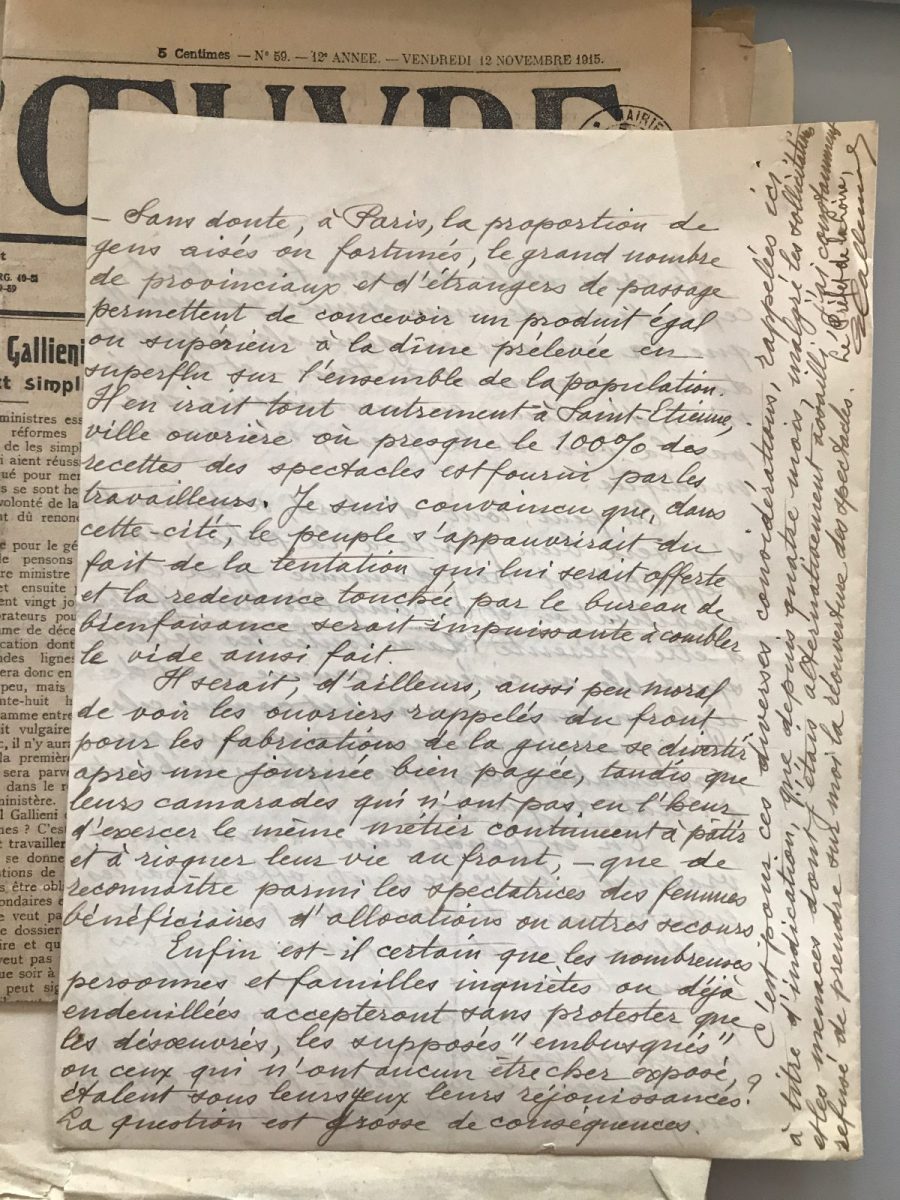 5 Centimes — N° 59. — 12e ANNEE. — VENDREDI 12 NOVEMBRE 1915.
ŒUVRE
MAIRIE
RG. 40-53
Gallieni
t simpl
ministres ess
réformes
de les simpl
i aient réuss
qué pour mer
s se sont he
volonté de la
t dû renon
e pour le gé
le pensons
re ministre
et ensuite
ent vingt jo
orateurs pou
me de déce
cation dont
ndes lignes
era donc en
peu, mais
nte-huit h
ramme entre
it vulgaire
c, il n'y aura
la première
sera parve
dans le r
ministère.
l Gallieni
mes ? C'es
t travailler
se donne
stions de
s être obl
ondaires e
e veut pa
e dossier
ire et qu
veut pas
ue soir à
peut sig
— Sans doute, à Paris, la proportion de
gens aisés ou fortunés, le grand nombre
de provinciaux et d'étrangers de passage
permettent de concevoir un produit égal
ou supérieur à la dîme prélevée en
superflu sur l'ensemble de la population.
Il en irait tout autrement à Saint-Etienne,
ville ouvrière où presque le 100% des
recettes des spectacles est fourni par les
travailleurs. Je suis convaincu que, dans
cette cité, le peuple s'appauvrirait du
fait de la tentation qui lui serait offerte
et la redevance touchée par le bureau de
bienfaisance serait impuissante à combler
le vide ainsi fait.
Il serait, d'ailleurs, aussi peu moral
de voir les ouvriers rappelés du front
pour les fabrications de la guerre se divertir
après une journée bien payée, tandis que
leurs camarades qui n'ont pas eu l'heur
d'exercer le même métier continuent à pâtir
et à risquer leur vie au front, — que de
reconnaître parmi les spectatrices des femmes
bénéficiaires d'allocations ou autres secours.
Enfin est-il certain que les nombreuses
personnes et familles inquiètes ou déjà
endeuillées accepteront sans protester que
les désœuvrés, les supposés "embusqués"
ou ceux qui n'ont aucun être cher exposé,
étalent sous leurs yeux leurs réjouissances ?
La question est grosse de conséquences.
C'est pour ces diverses considérations, rappelées ici
à titre d'indication, que depuis quatre mois, malgré les sollicitations
et les menaces dont j'étais alternativement assailli, j'ai constamment
refusé de prendre sur moi la réouverture des spectacles.
Le Préfet de la Loire,